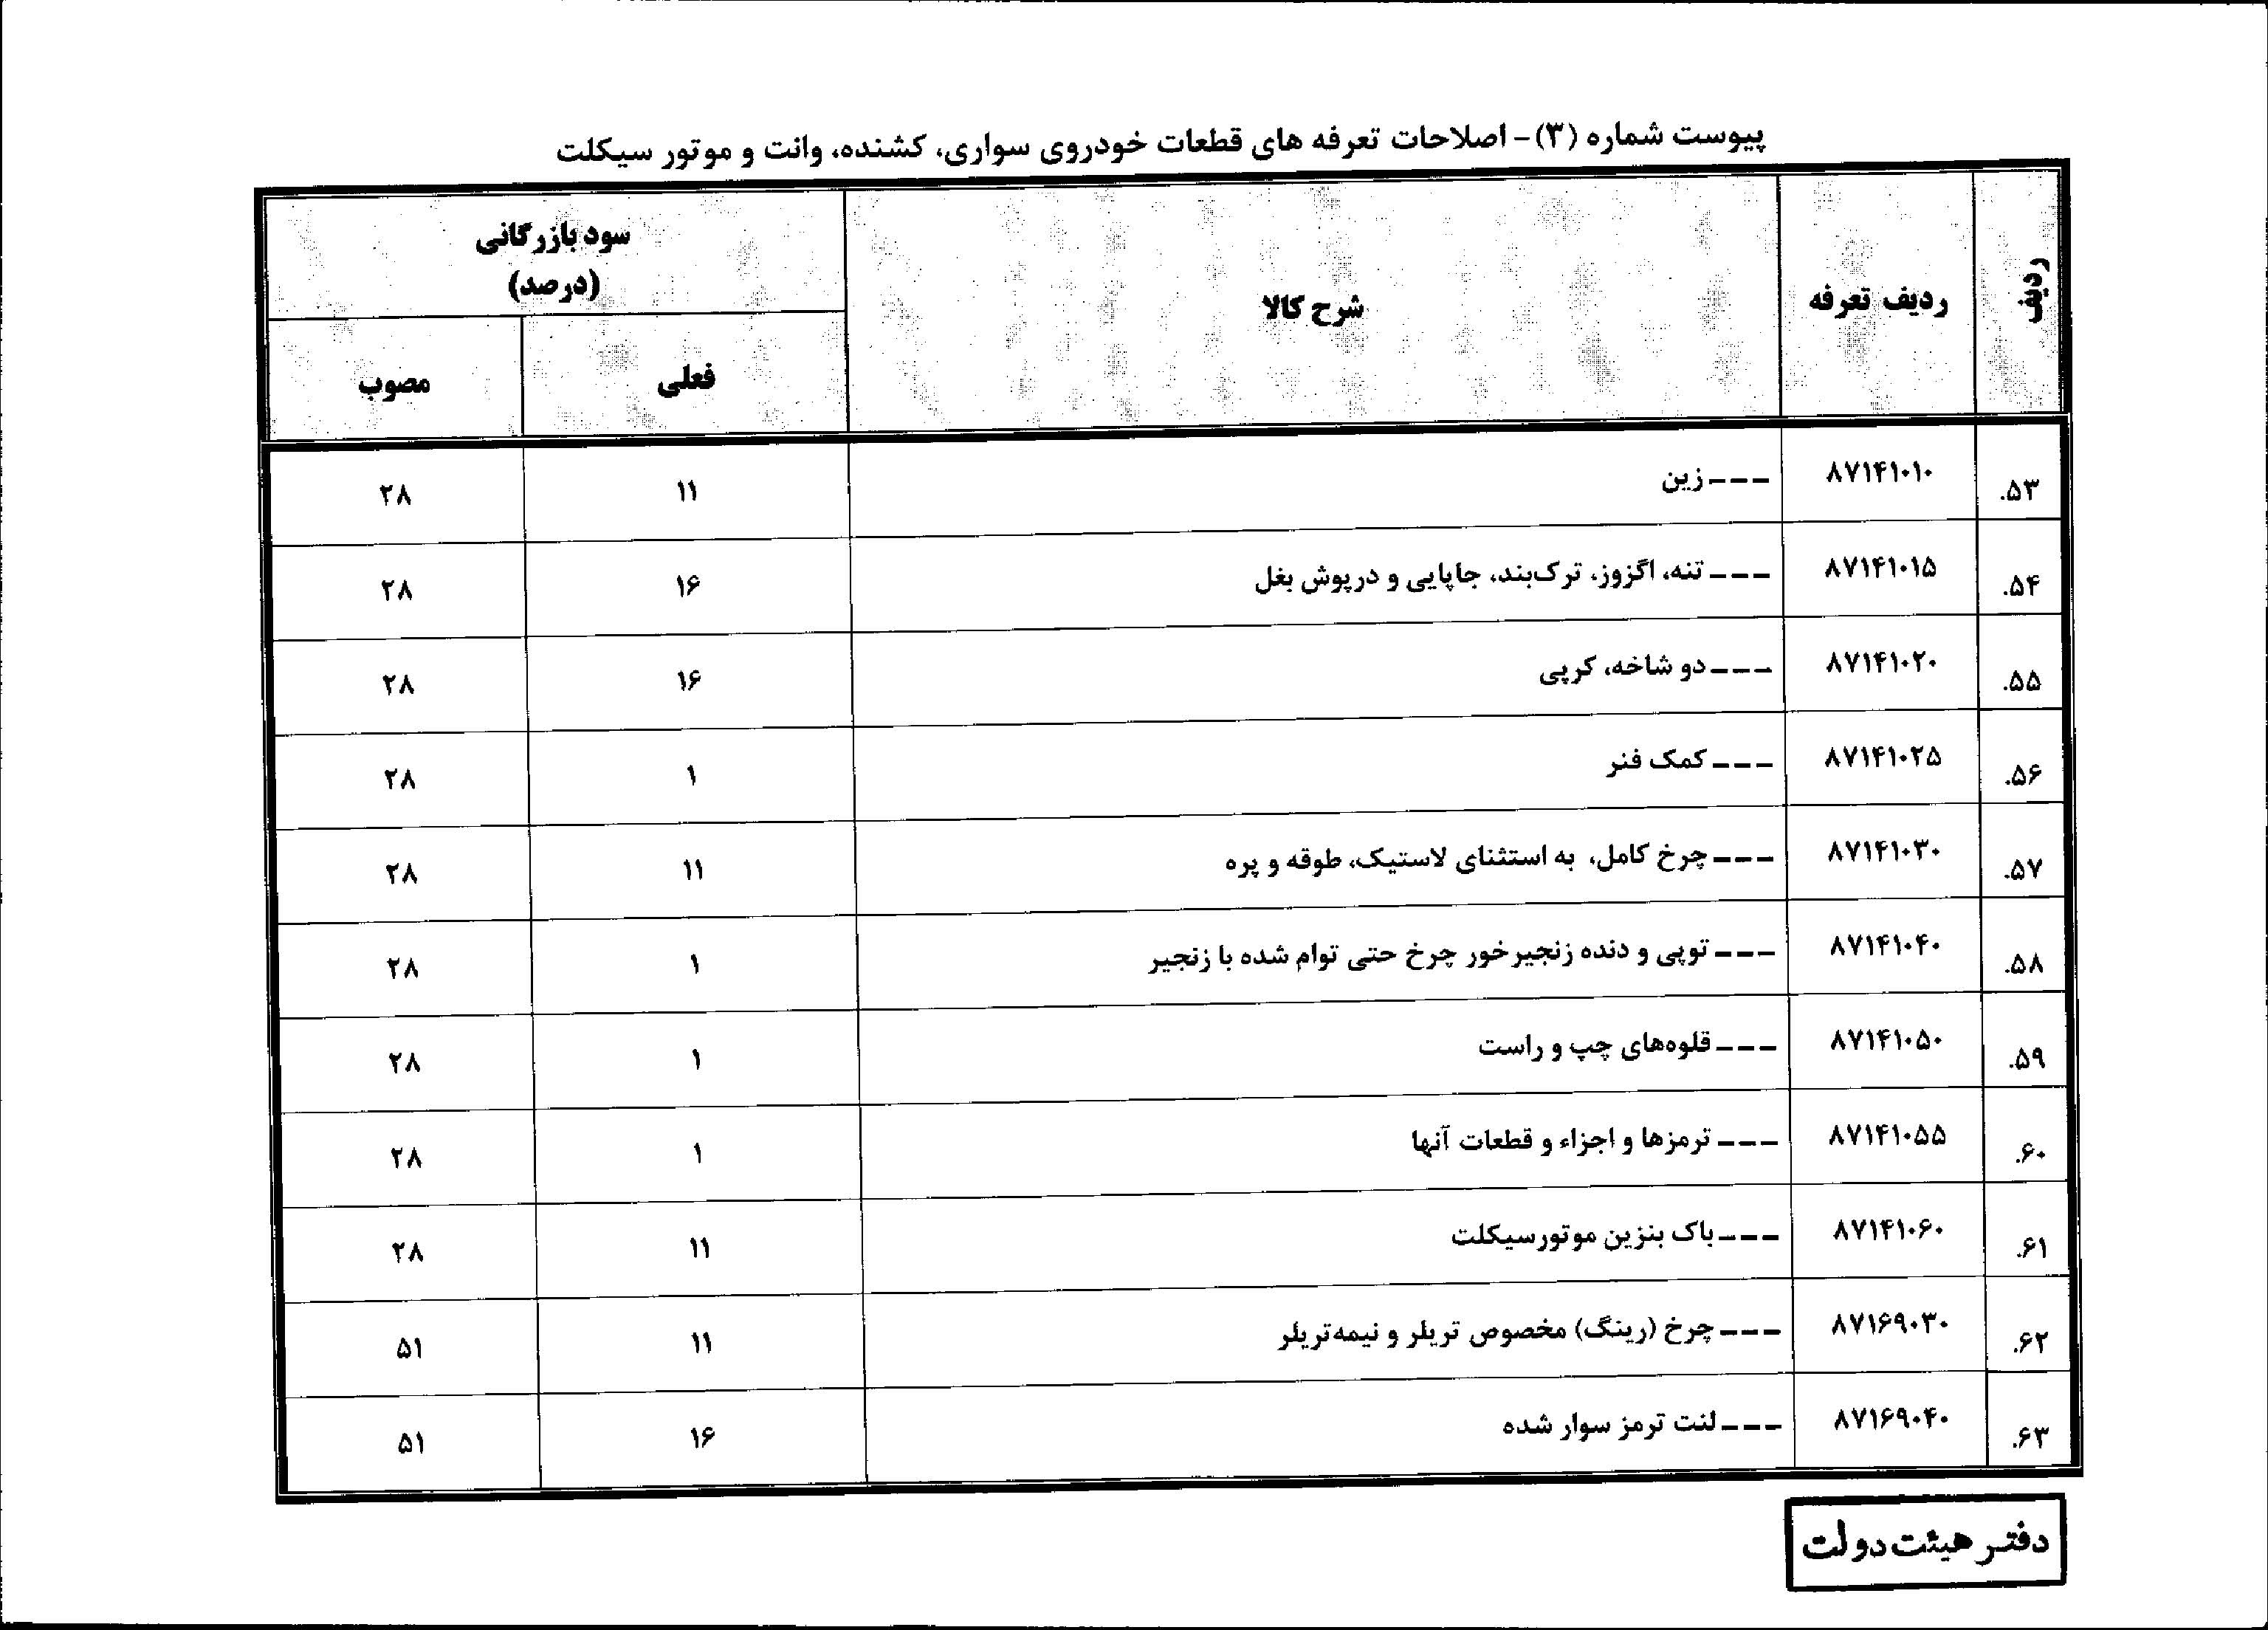 پیوست شماره (۳)- اصلاحات تعرفه های قطعات خودروی سواری، کشنده، وانت و موتور سیکلت
ردیف ردیف تعرفه شرح کالا سود بازرگانی
(درصد)
فعلی مصوب
۵۳. ۸۷۱۴۱۰۱۰ ---زین ۱۱ ۲۸
۵۴. ۸۷۱۴۱۰۱۵ --- تنه، اگزوز، ترک‌بند، جاپایی و درپوش بغل ۱۶ ۲۸
۵۵. ۸۷۱۴۱۰۲۰ ---دو شاخه، کرپی ۱۶ ۲۸
۵۶. ۸۷۱۴۱۰۲۵ --- کمک فنر ۱ ۲۸
۵۷. ۸۷۱۴۱۰۳۰ ---چرخ کامل، به استثنای لاستیک، طوقه و پره ۱۱ ۲۸
۵۸. ۸۷۱۴۱۰۴۰ --- توپی و دنده زنجیرخور چرخ حتی توام شده با زنجیر ۱ ۲۸
۵۹. ۸۷۱۴۱۰۵۰ ---قلوه‌های چپ و راست ۱ ۲۸
۶۰. ۸۷۱۴۱۰۵۵ --- ترمزها و اجزاء و قطعات آنها ۱ ۲۸
۶۱. ۸۷۱۴۱۰۶۰ ---باک بنزین موتورسیکلت ۱۱ ۲۸
۶۲. ۸۷۱۶۹۰۳۰ ---چرخ (رینگ) مخصوص تریلر و نیمه‌تریلر ۱۱ ۵۱
۶۳. ۸۷۱۶۹۰۴۰ ---لنت ترمز سوار شده ۱۶ ۵۱
دفتر هیئت دولت